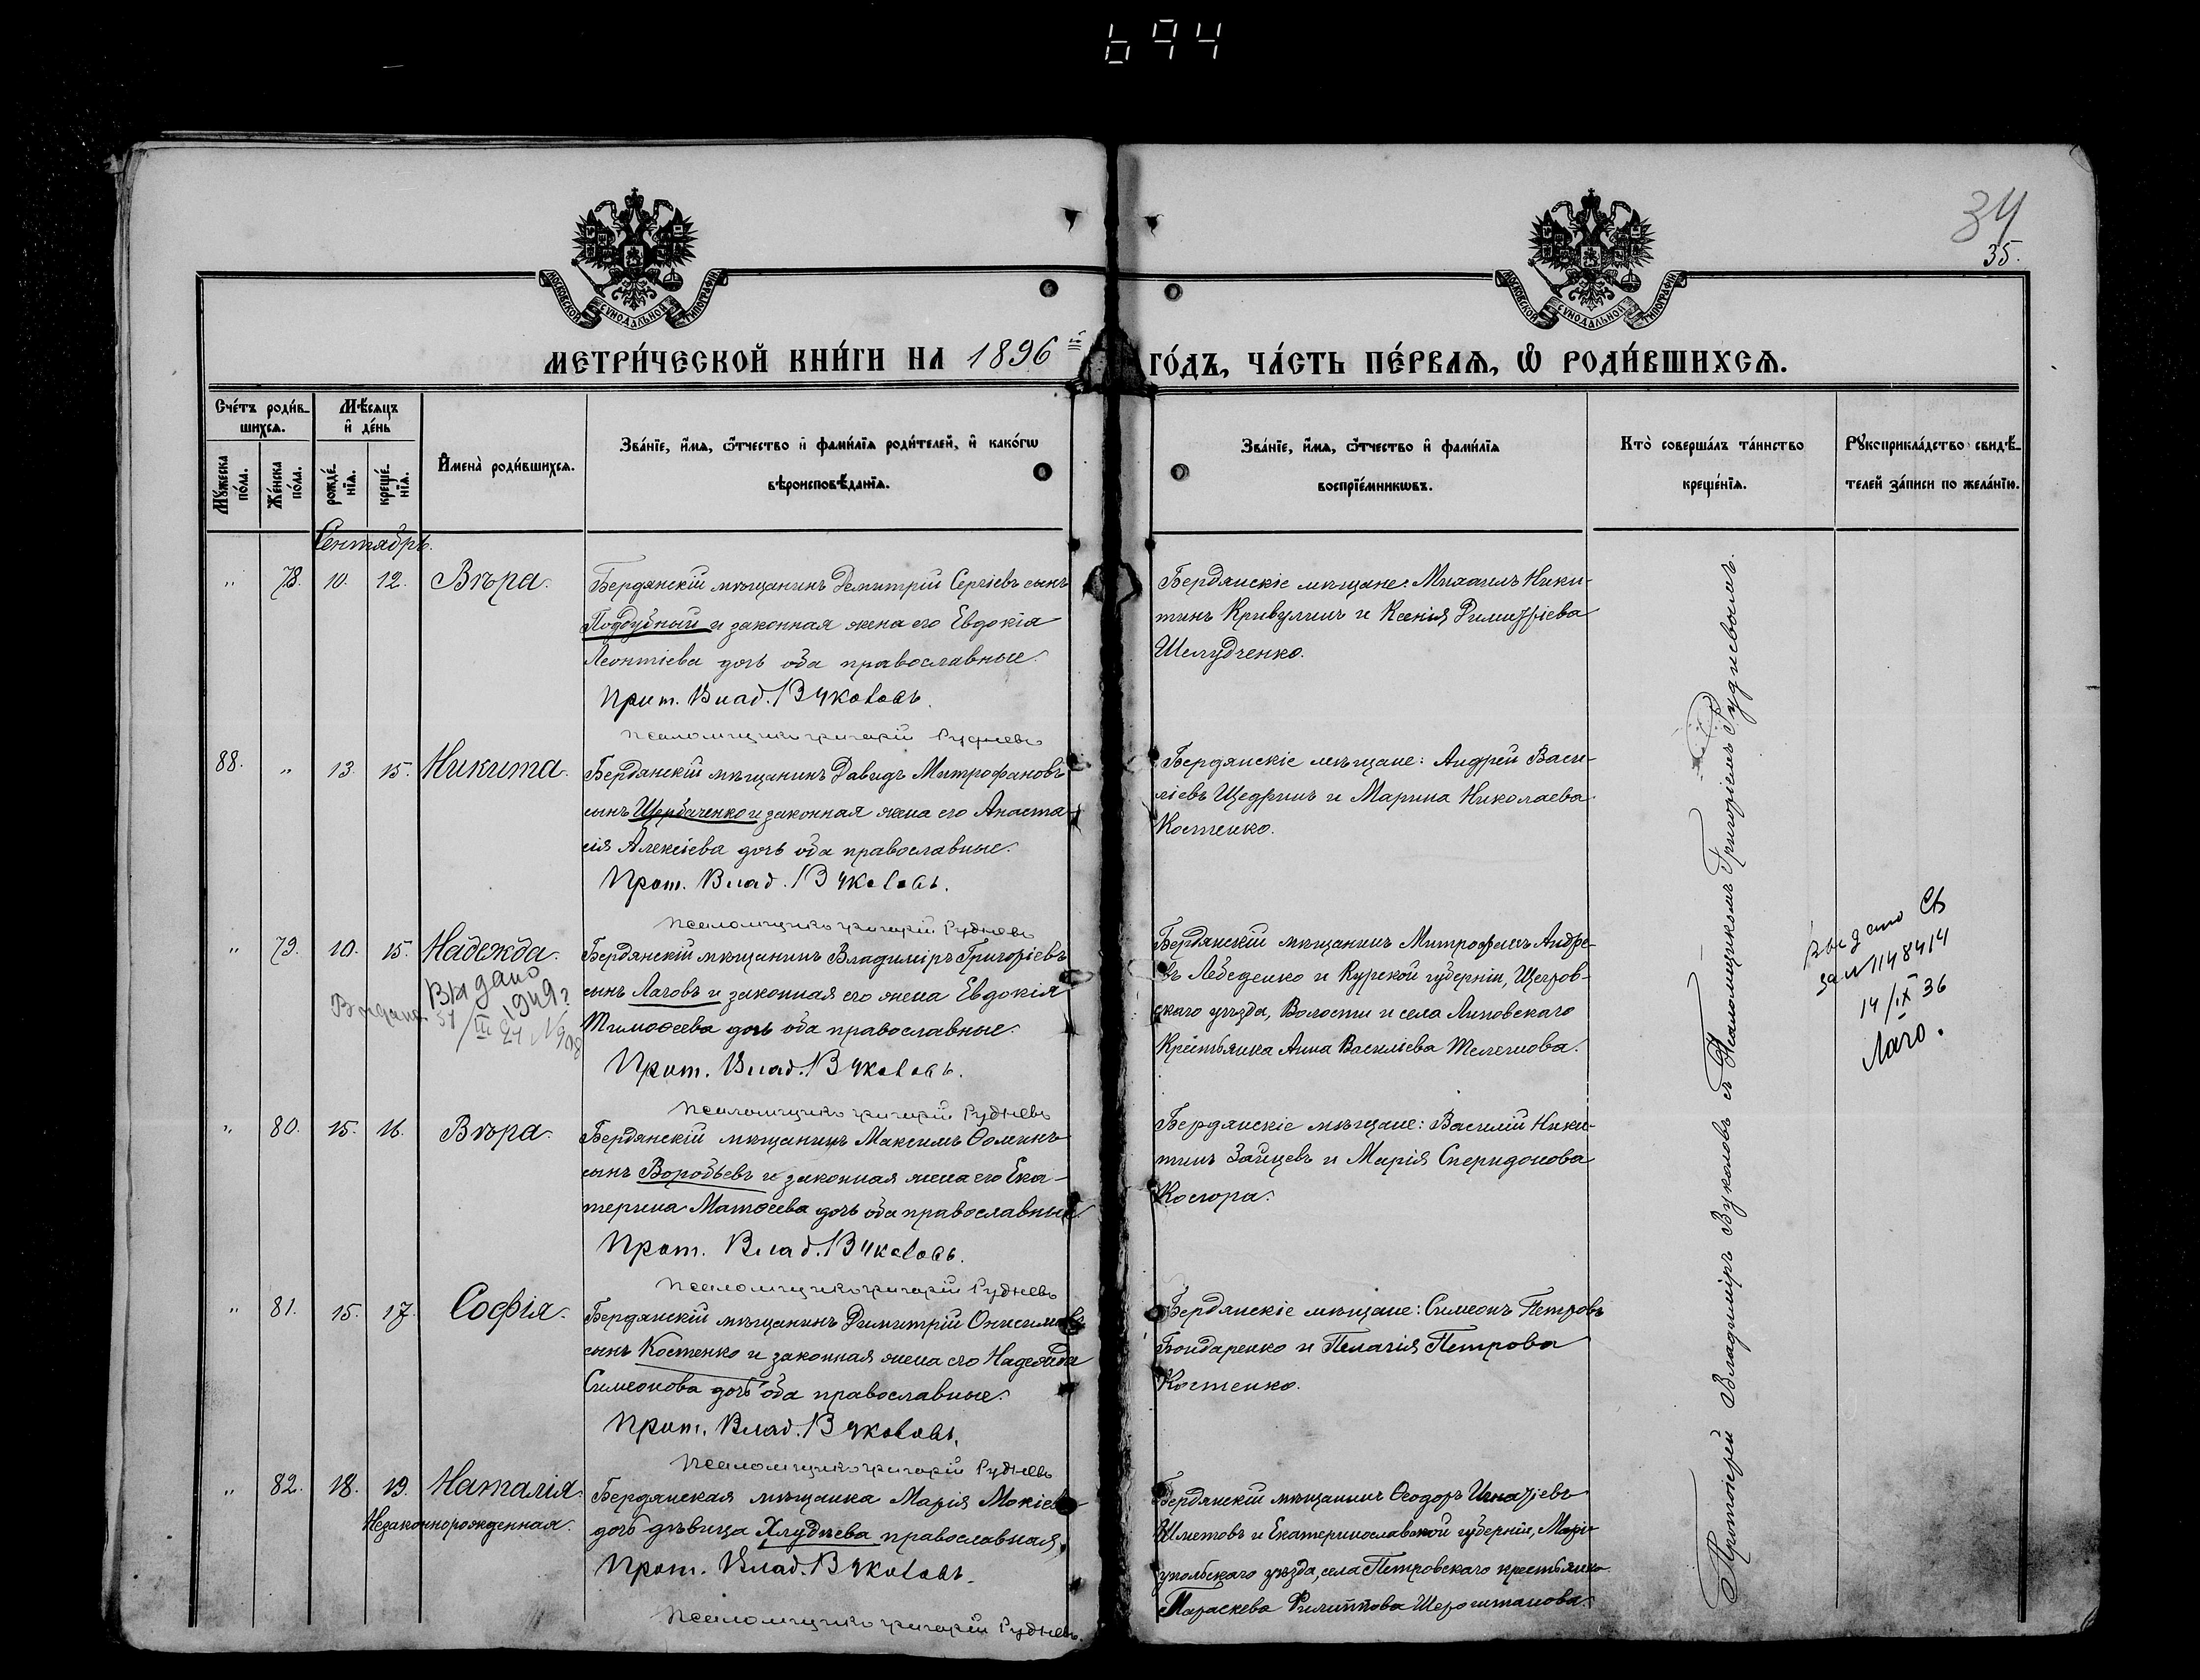 694
34
35.
МОСКОВСКОЙ СѴНОДАЛЬНОЙ ТИПОГРАФІИ
МОСКОВСКОЙ СѴНОДАЛЬНОЙ ТИПОГРАФІИ
МЕТРИ́ЧЕСКОЙ КНИ́ГИ НА 1896 й ГО́ДЪ, ЧА́СТЬ ПЕ́РВАѦ, Ѡ҆ РОДИ́ВШИХСѦ.
Сче́тъ роди́в-
шихсѧ.
Мѣ́сѧцъ
и҆ де́нь
Мꙋ́жеска
по́ла.
Же́нска
по́ла.
рожде́-
нїѧ.
креще́-
нїѧ.
И҆мена̀ роди́вшихсѧ.
Зва́нїе, и҆́мѧ, ѻ҆́тчество и҆ фами́лїѧ роди́телей, и҆ како́гѡ
вѣроисповѣ́данїѧ.
Зва́нїе, и҆́мѧ, ѻ҆́тчество и҆ фами́лїѧ
воспрїе́мникѡвъ.
Кто̀ соверша́лъ та́инство
креще́нїѧ.
Рꙋкоприкла́дство свидѣ́-
телей за́писи по жела́нїю.
Сентябрь.
" 78. 10. 12. Вѣра.
Бердянскій мѣщанинъ Демитрій Сергіевъ сынъ
Поддубный и законная жена его Евдокія
Леонтіева дочь оба православные.
Прот. Влад. Вуколовъ.
Псаломщикъ Григорій Рудневъ
Бердянскіе мѣщане: Михаилъ Ники-
тинъ Кривулинъ и Ксенія Димитріева
Шелудченко.
88. " 13. 15. Никита.
Бердянскій мѣщанинъ Давидъ Митрофановъ
сынъ Щербаченко и законная жена его Анаста-
сія Алексіева дочь оба православные.
Прот. Влад. Вуколовъ.
Псаломщикъ Григорій Рудневъ
Бердянскіе мѣщане: Андрей Васи-
ліевъ Щедринъ и Марина Николаева
Костенко.
" 79. 10. 15. Надежда.
Выдано
Выдана 31/III 24 N 998
Бердянскій мѣщанинъ Владиміръ Григоріевъ
сынъ Лаговъ и законная его жена Евдокія
Тимоѳеева дочь оба православные.
Прот. Влад. Вуколовъ.
Псаломщикъ Григорій Рудневъ
Бердянскій мѣщанинъ Митрофанъ Андре-
въ Лебеденко и Курской губерніи, Щигров-
скаго уѣзда, Волости и села Липовскаго
Крестьянка Анна Василіева Телегиова.
Выдано Св
за N 1148414
14/IX 36
Лаго.
" 80. 15. 16. Вѣра.
Бердянскій мѣщанинъ Максимъ Ѳоминъ
сынъ Воробьевъ и законная жена его Ека-
терина Матѳеева дочь оба православные.
Прот. Влад. Вуколовъ.
Псаломщикъ Григорій Рудневъ
Бердянскіе мѣщане: Василій Ники-
тинъ Зайцевъ и Марія Спиридонова
Косюра.
" 81. 15. 17. Софія.
Бердянскій мѣщанинъ Димитрій Онисимовъ
сынъ Костенко и законная жена его Надежда
Симеонова дочь оба православные.
Прот. Влад. Вуколовъ.
Псаломщикъ Григорій Рудневъ
Бердянскіе мѣщане: Симеонъ Петровъ
Бондаренко и Пелагія Петрова
Костенко.
" 82. 18. 19. Наталія.
Незаконнорожденная.
Бердянская мѣщанка Марія Мокіева
дочь дѣвица Хлудѣева православная.
Прот. Влад. Вуколовъ.
Псаломщикъ Григорій Рудневъ.
Бердянскій мѣщанинъ Ѳеодоръ Игнатіевъ
Шметовъ и Екатеринославской губерніи, Марі-
упольскаго уѣзда, села Петровскаго крестьянка
Параскева Филиппова
Протоіерей Владиміръ Вуколовъ съ Псаломщикомъ Григоріемъ Рудневымъ.